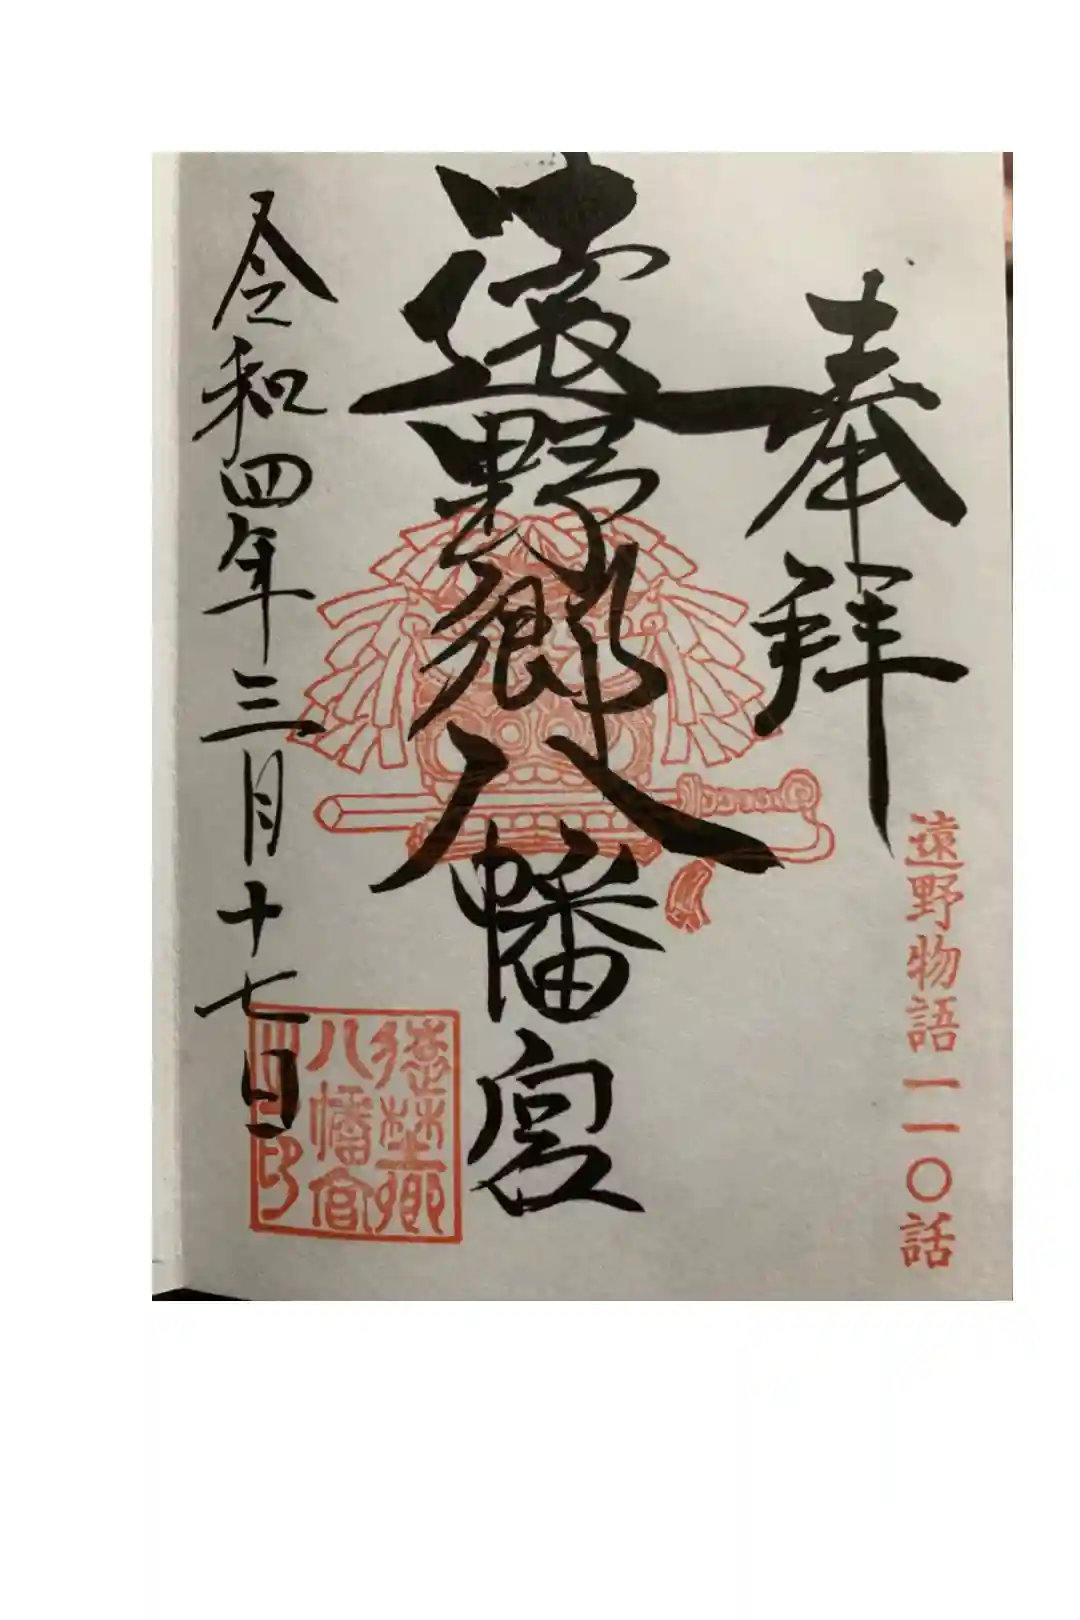 奉拝
遠野物語一一〇話
遠野郷八幡宮
令和四年三月十七日
遠野郷
八幡宮